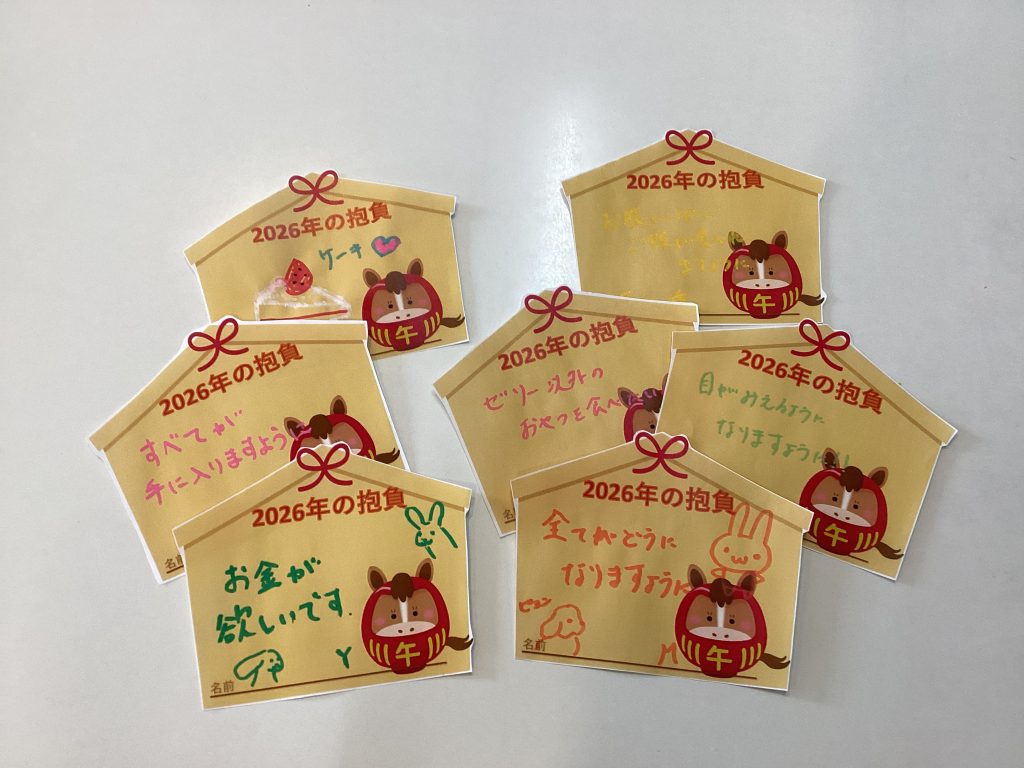 2026年の抱負
ケーキ
午
2026年の抱負
ますように
午
2026年の抱負
すべてが
手に入りますように
名前
2026年の抱負
ゼリー以外の
おやつを食べたい
名
2026年の抱負
目がみえるように
なりますように!!
午
2026年の抱負
お金が
欲しいです.
Y
名前
午
2026年の抱負
全てがどうに
なりますように
ピョン
名前
M
午